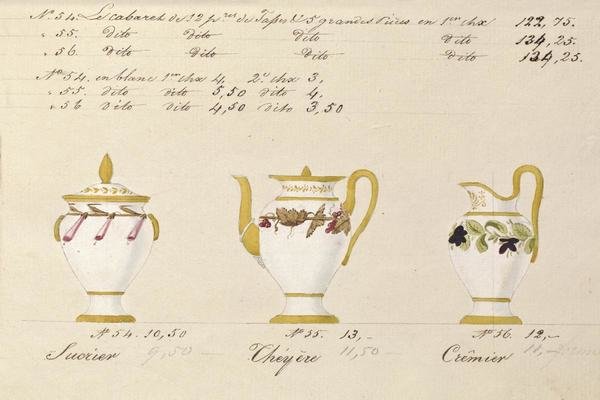 No. 54. Le cabaret de 12 pres. de Tasses & 5 grandes Pièces en 1er. chx 122,75.
" 55. Dito Dito Dito Dito 134,25.
" 56. Dito Dito Dito Dito 134,25.
No. 54. en blanc 1er chx 4, 2d. chx 3,
" 55. Dito Dito 5,50 Dito 4,
" 56 Dito Dito 4,50 Dito 3,50
No. 54. 10,50
Sucrier 9,50 —
No. 55. 13,–
Théyère 11,50 —
No. 56. 12,–
Crêmier 11,–